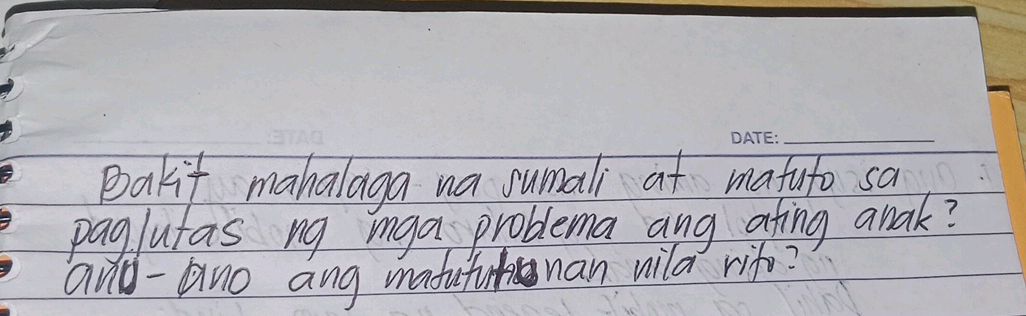 DATE:
Bakit mahalaga na sumali at matuto sa
paglutas ng mga problema ang ating anak?
anu-ano ang matututunan nila rito?